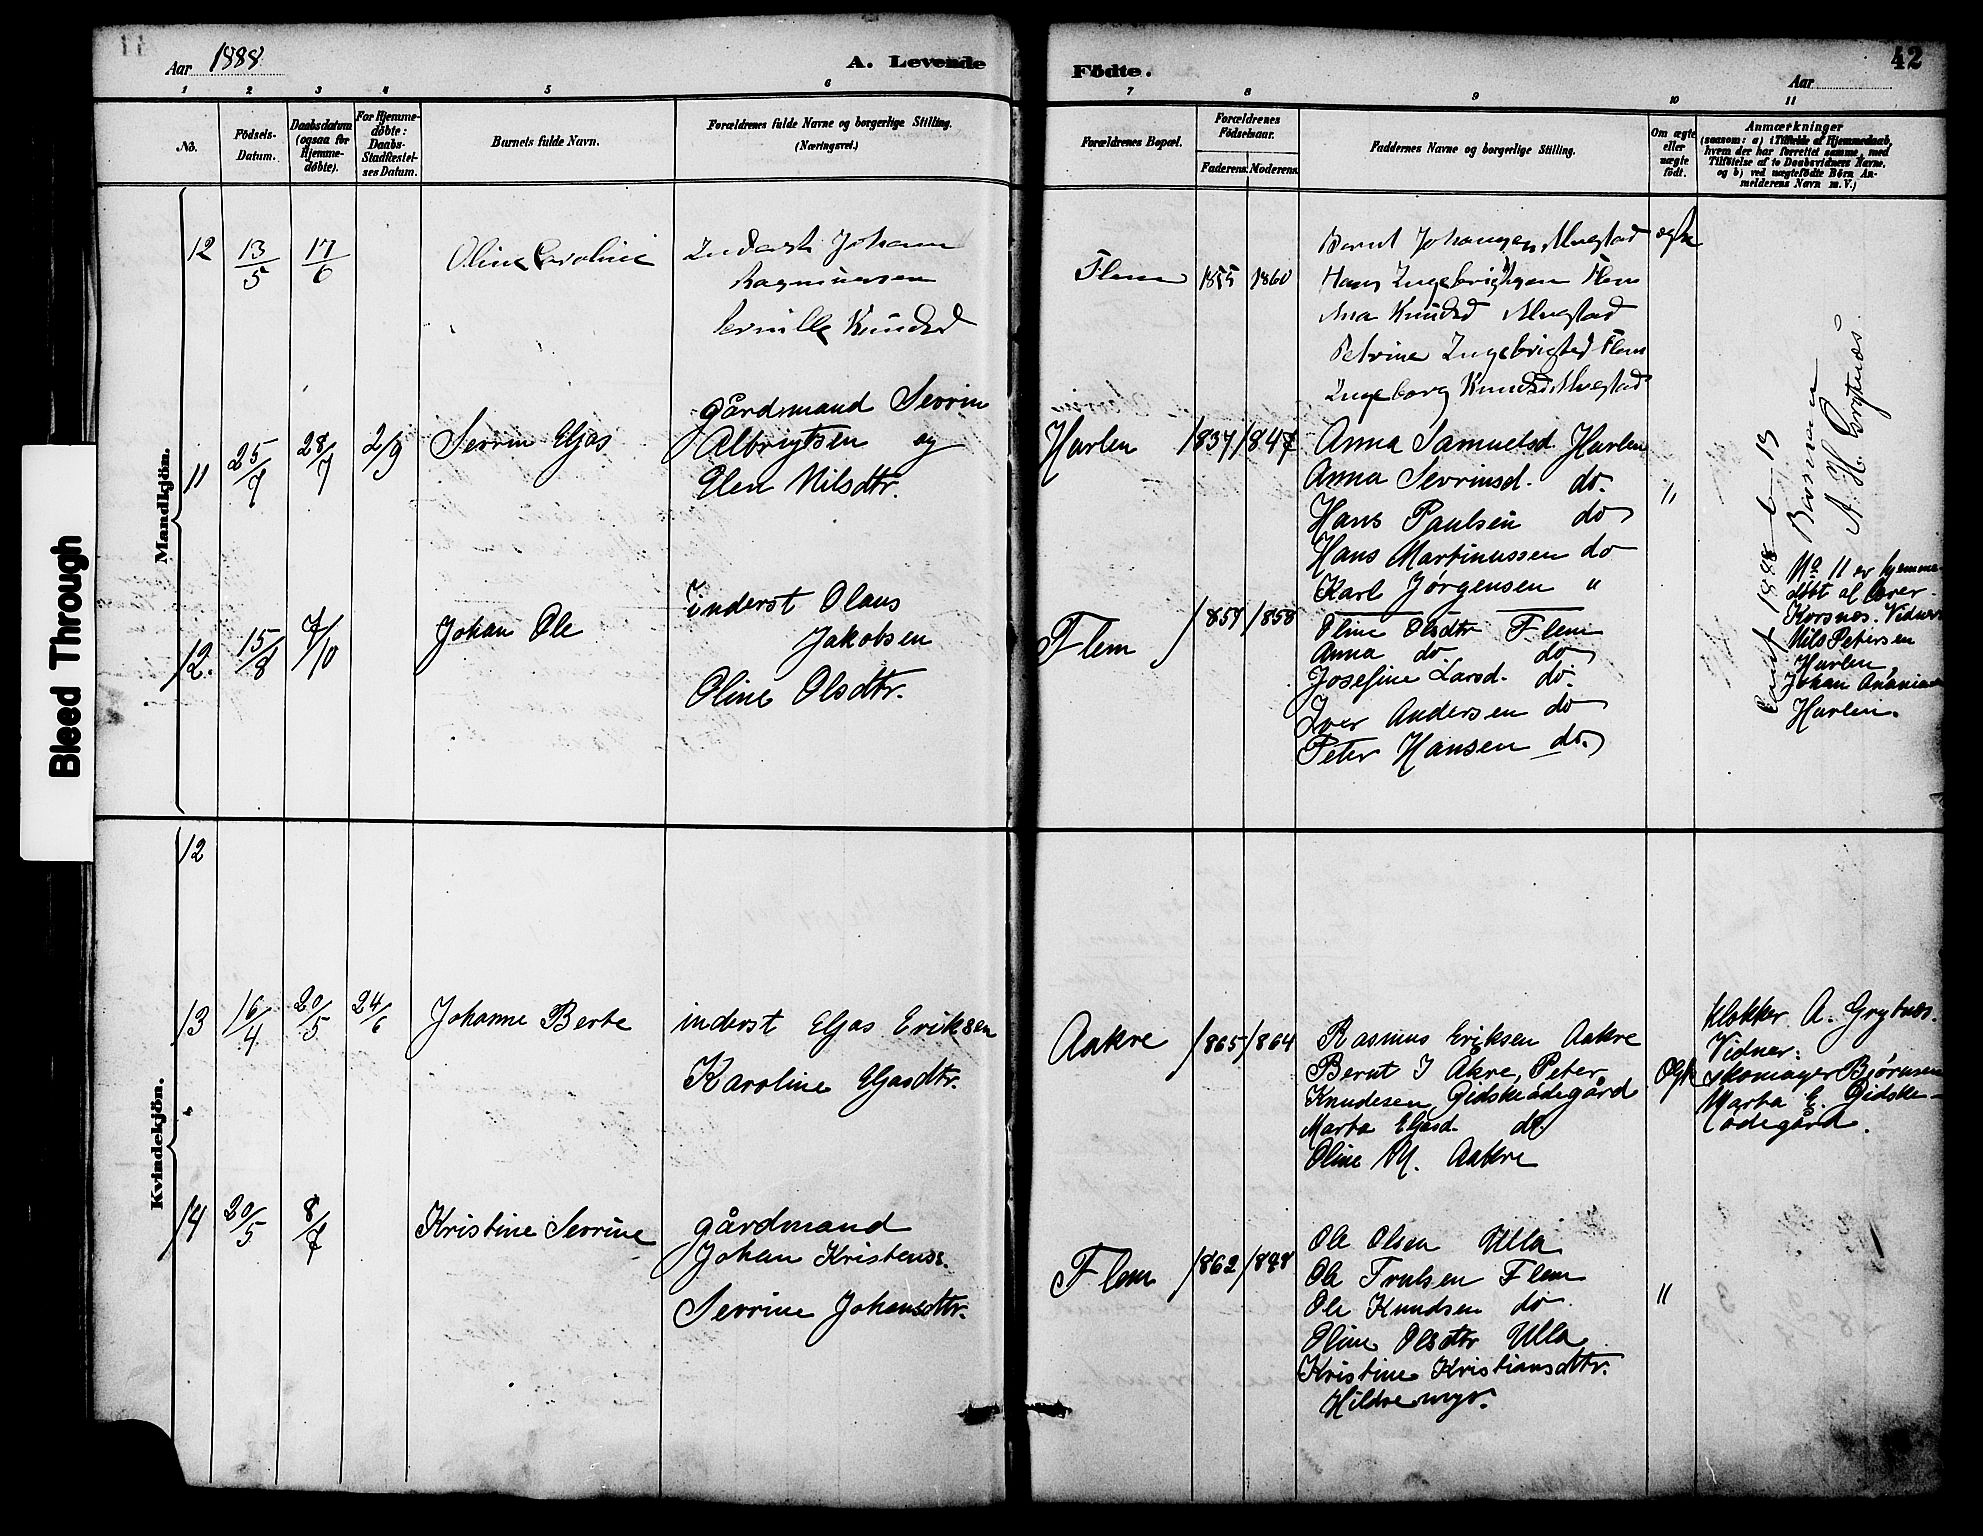 Aar 1888
A. Levende Födte.
42
Aar
1 2 3 4 5 6 7 8 9 10 11
No.
Födsels-Datum.
Daabsdatum (ogsaa for Hjemme-döbte).
For Hjemme-döbte: Daabs-Stadfæstel-ses Datum.
Barnets fulde Navn.
Forældrenes fulde Navne og borgerlige Stilling.
(Næringsvei.)
Forældrenes Bopæl.
Forældrenes Födselsaar.
Faderens. Moderens.
Faddernes Navne og borgerlige Stilling.
Om ægte eller uægte født.
Anmærkninger
(saasom: a) i Tilfælde af Hjemmedaab, hvem der har forrettet samme, med Tilföielse af to Daabsvidners Navne, og b) ved uægtefödte Börn An-melderens Navn m. V.)
Bleed Through
Mandkjön.
12 13/5 17/6 Oline Caroline
Inderst Johan
Rasmussen
Pernille Knudsd
Flem 1855 1860
Bernt Johansen Alvestad ægte
Hans Ingebrigtsen Flem
Ana Knudsd Alvestad
Petrine Ingebrigtsd Flem
Ingeborg Knudsd Alvestad
11 25/7 28/7 2/9 Sevrin Eljas
gårdmand Sevrin
Albrigtsen og
Elen Nilsdtr.
Harlen 1837 1847
Anna Samuelsd. Harlen
Anna Sevrinsd. do.
Hans Paulsen do
Hans Martinussen do
Karl Jørgensen "
"
12. 15/8 7/10 Johan Ole
inderst Olaus
Jakobsen
Oline Olsdtr.
Flem 1857 1858
Oline Olsdtr Flem
Anna do do
Josefine Larsd. do.
Iver Andersen do
Peter Hansen do.
1888 6 13
A. H. Grytnæs.
No 11 er hjemme-
døbt af lærer
Korsnes. Vidner
Nils Petersen
Harlen,
Johan Ananiasen
Harlen.
Kvindekjön.
12
13 16/4 20/5 24/6 Johanne Berte
inderst Eljas Eriksen
Karoline Eljasdtr.
Aakre 1865 1864
Rasmus Eriksen Aakre
Bernt I Åkre, Peter
Knudesen Gidskeødegård
Marta Eljasd. do.
Oline M. Aakre
Ægte
Klokker A. Grytnæs.
Vidner:
skomager Bjørnsen
Marta E. Gidske-
ødegård.
14 20/5 8/7 Kristine Sevrine
gårdmand
Johan Kristens.
Sevrine Johansdtr.
Flem 1862
Ole Olsen Ulla
Ole Trulsen Flem
Ole Knudsen do
Oline Olsdtr Ulla
Kristine Kristiansdtr.
Hildremyr.
"